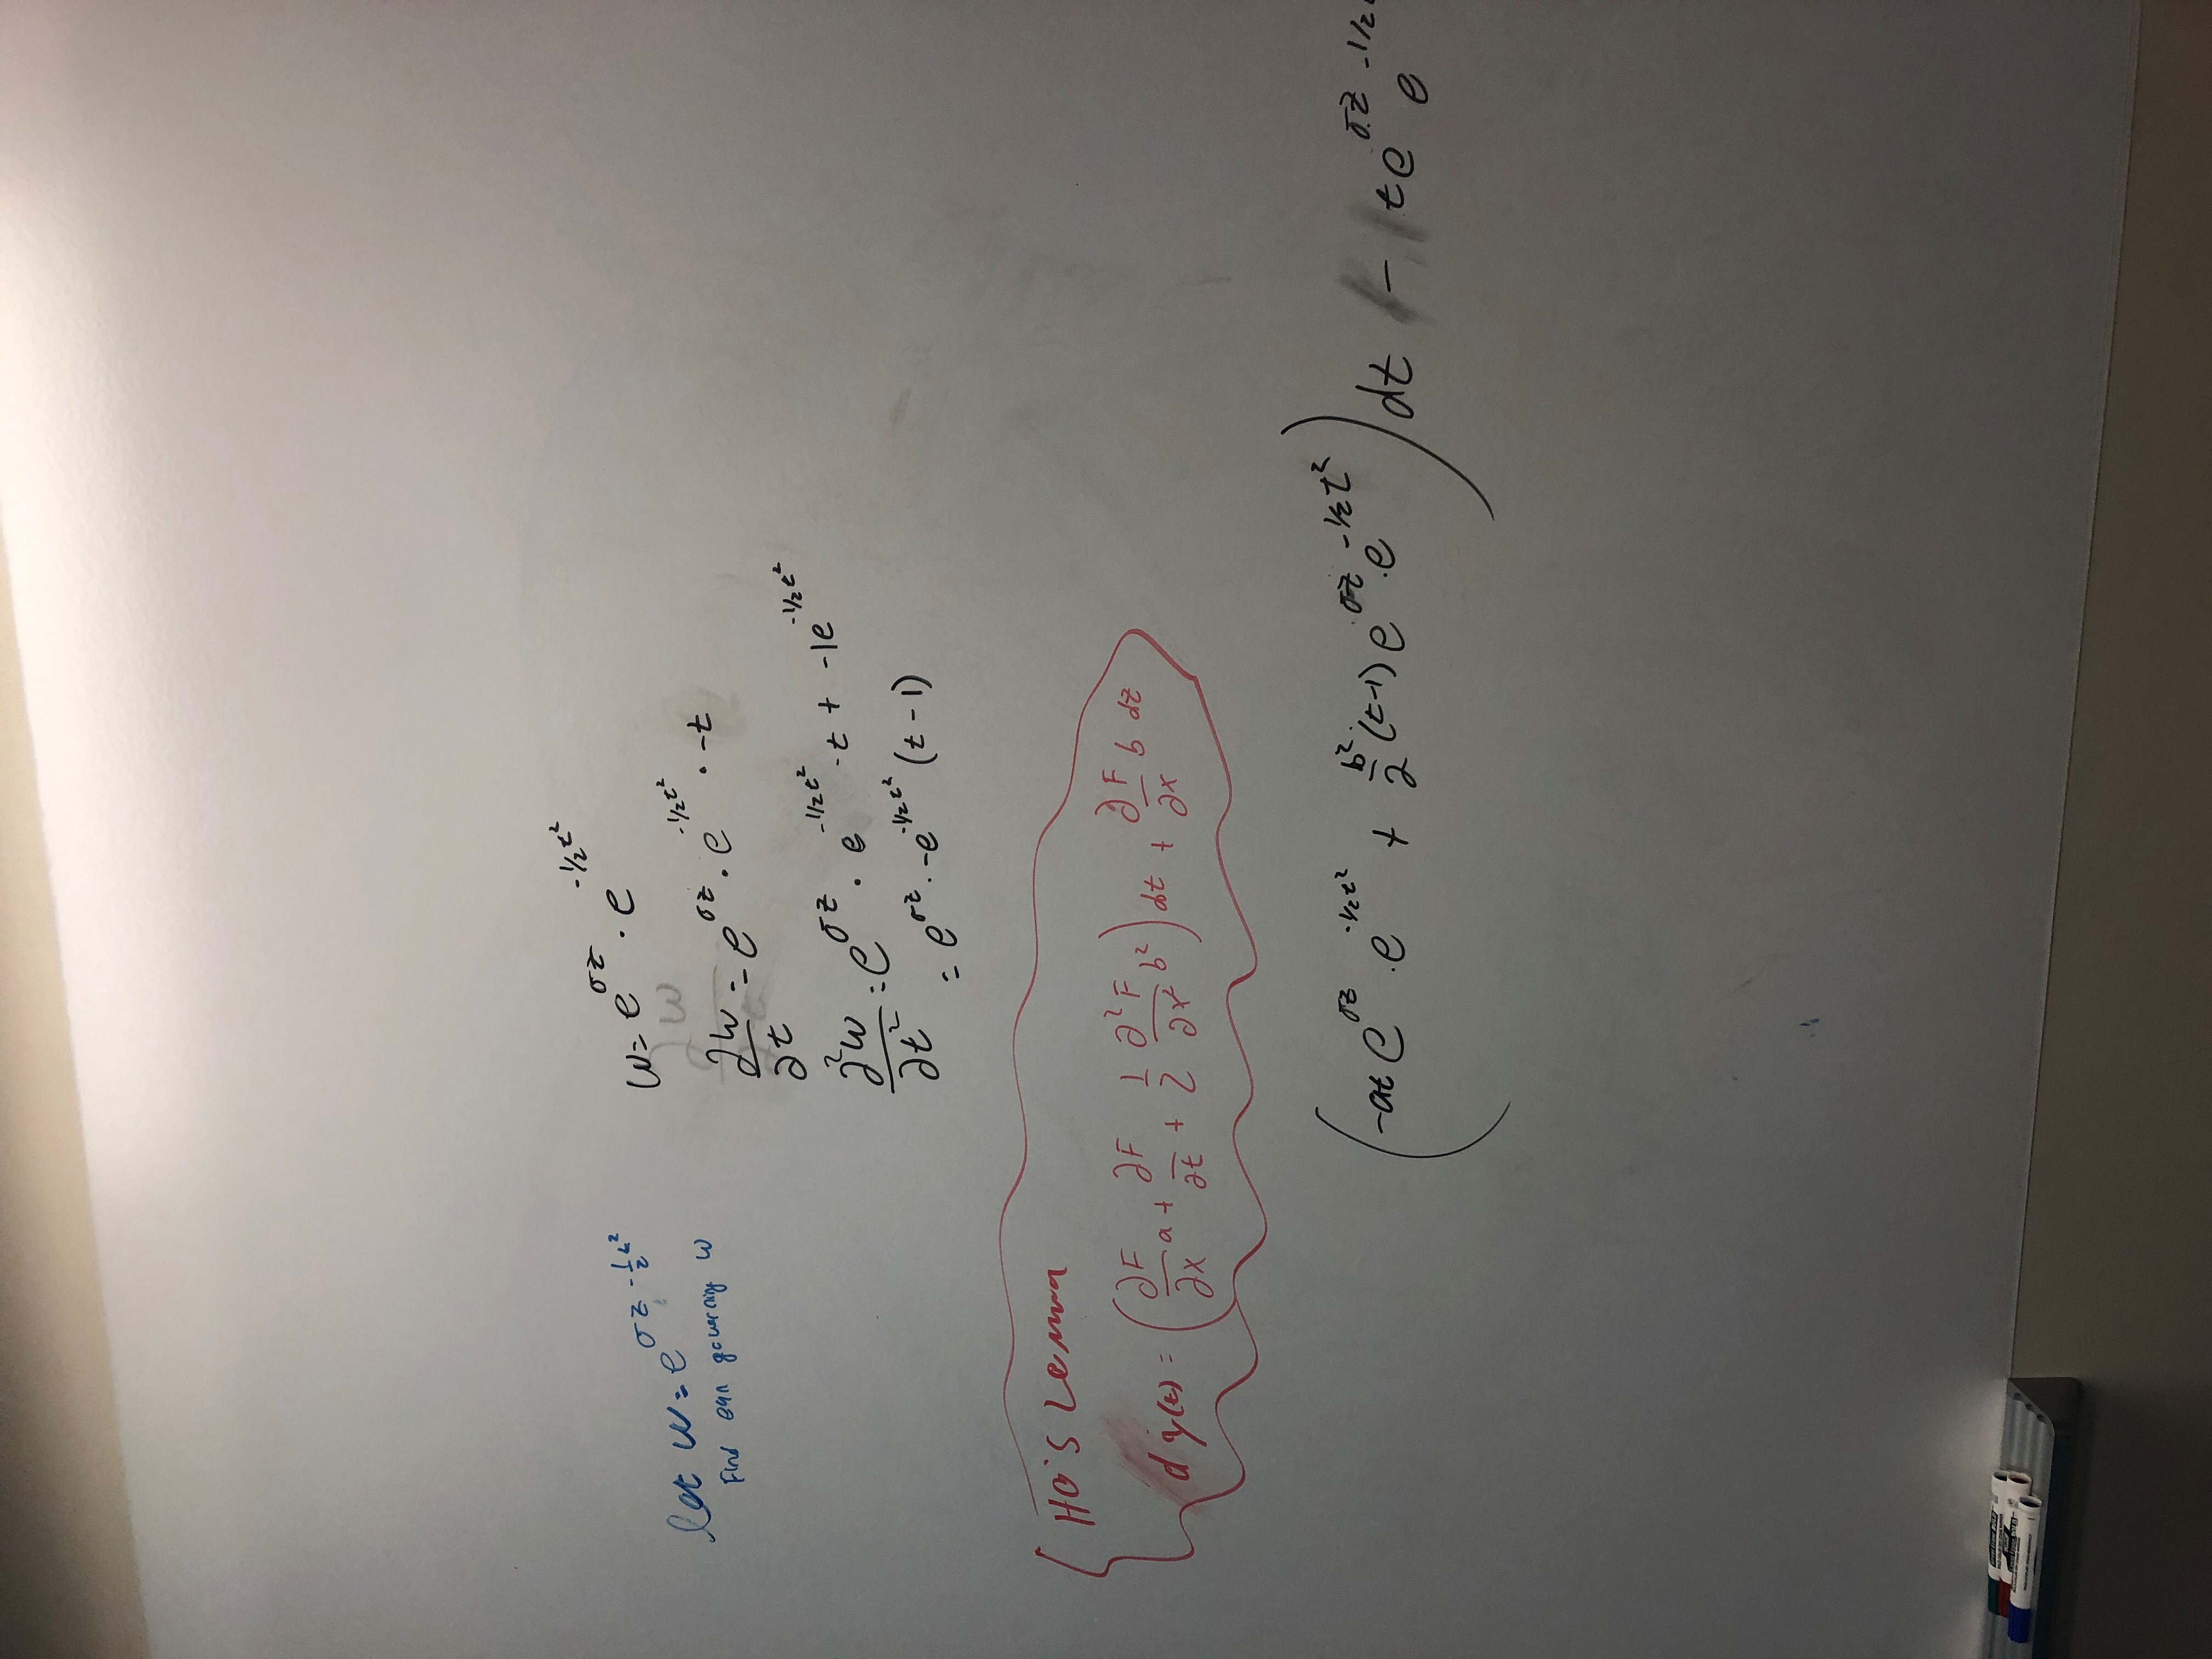 let w = e^{σz - \frac{1}{2}t^2}
Find eqn governing w
w = e^{σz} · e^{-1/2 t^2}
\frac{∂w}{∂t} = e^{σz} · e^{-1/2 t^2} · -t
\frac{∂^2 w}{∂t^2} = e^{σz} · e^{-1/2 t^2} · t + -1e^{-1/2 t^2}
= e^{σz} · -e^{-1/2 t^2} (t - 1)
ITO'S Lemma
dy(t) = (\frac{∂F}{∂x} a + \frac{∂F}{∂t} + \frac{1}{2} \frac{∂^2 F}{∂x^2} b^2) dt + \frac{∂F}{∂x} b dz
(-at e^{σz} · e^{-1/2 t^2} + \frac{b^2}{2} (t-1) e^{σz} · e^{-1/2 t^2}) dt - t e^{σz} e^{-1/2